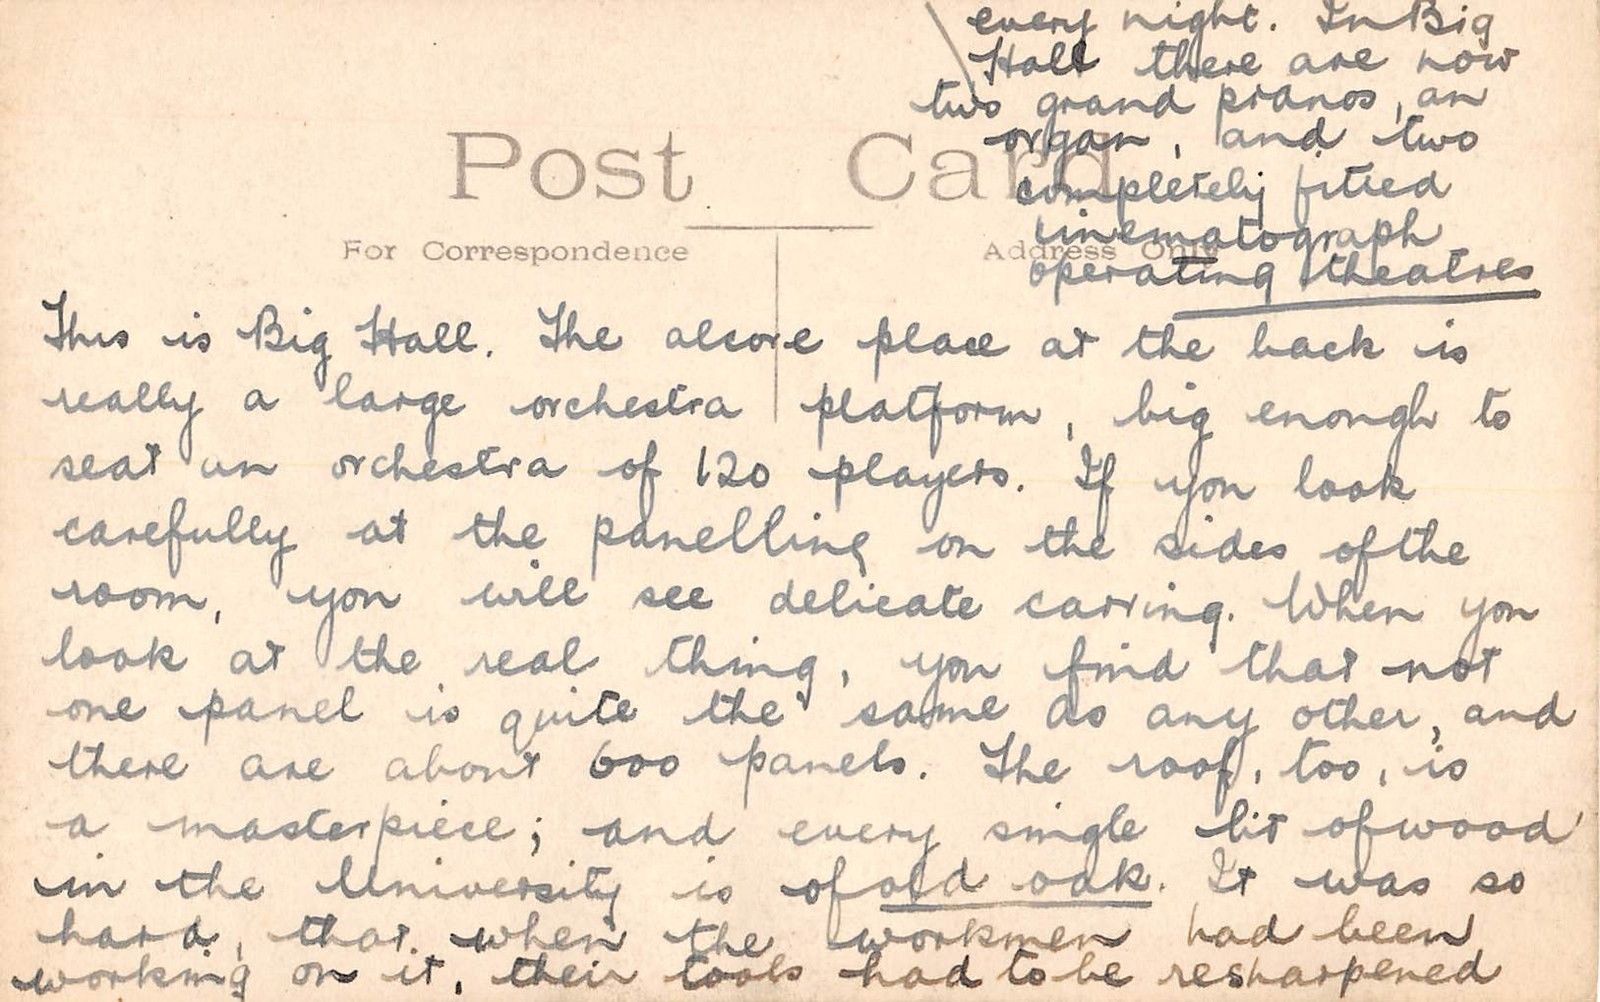 every night. In Big
Hall there are now
two grand pianos, an
organ, and two
completely fitted
cinematograph
operating theatres
Post Card
For Correspondence
Address Only
This is Big Hall. The alcove place at the back is
really a large orchestra platform, big enough to
seat an orchestra of 120 players. If you look
carefully at the panelling on the sides of the
room, you will see delicate carving. When you
look at the real thing, you find that not
one panel is quite the same as any other, and
there are about 600 panels. The roof, too, is
a masterpiece; and every single bit of wood
in the University is of old oak. It was so
hard, that when the workmen had been
working on it, their tools had to be resharpened